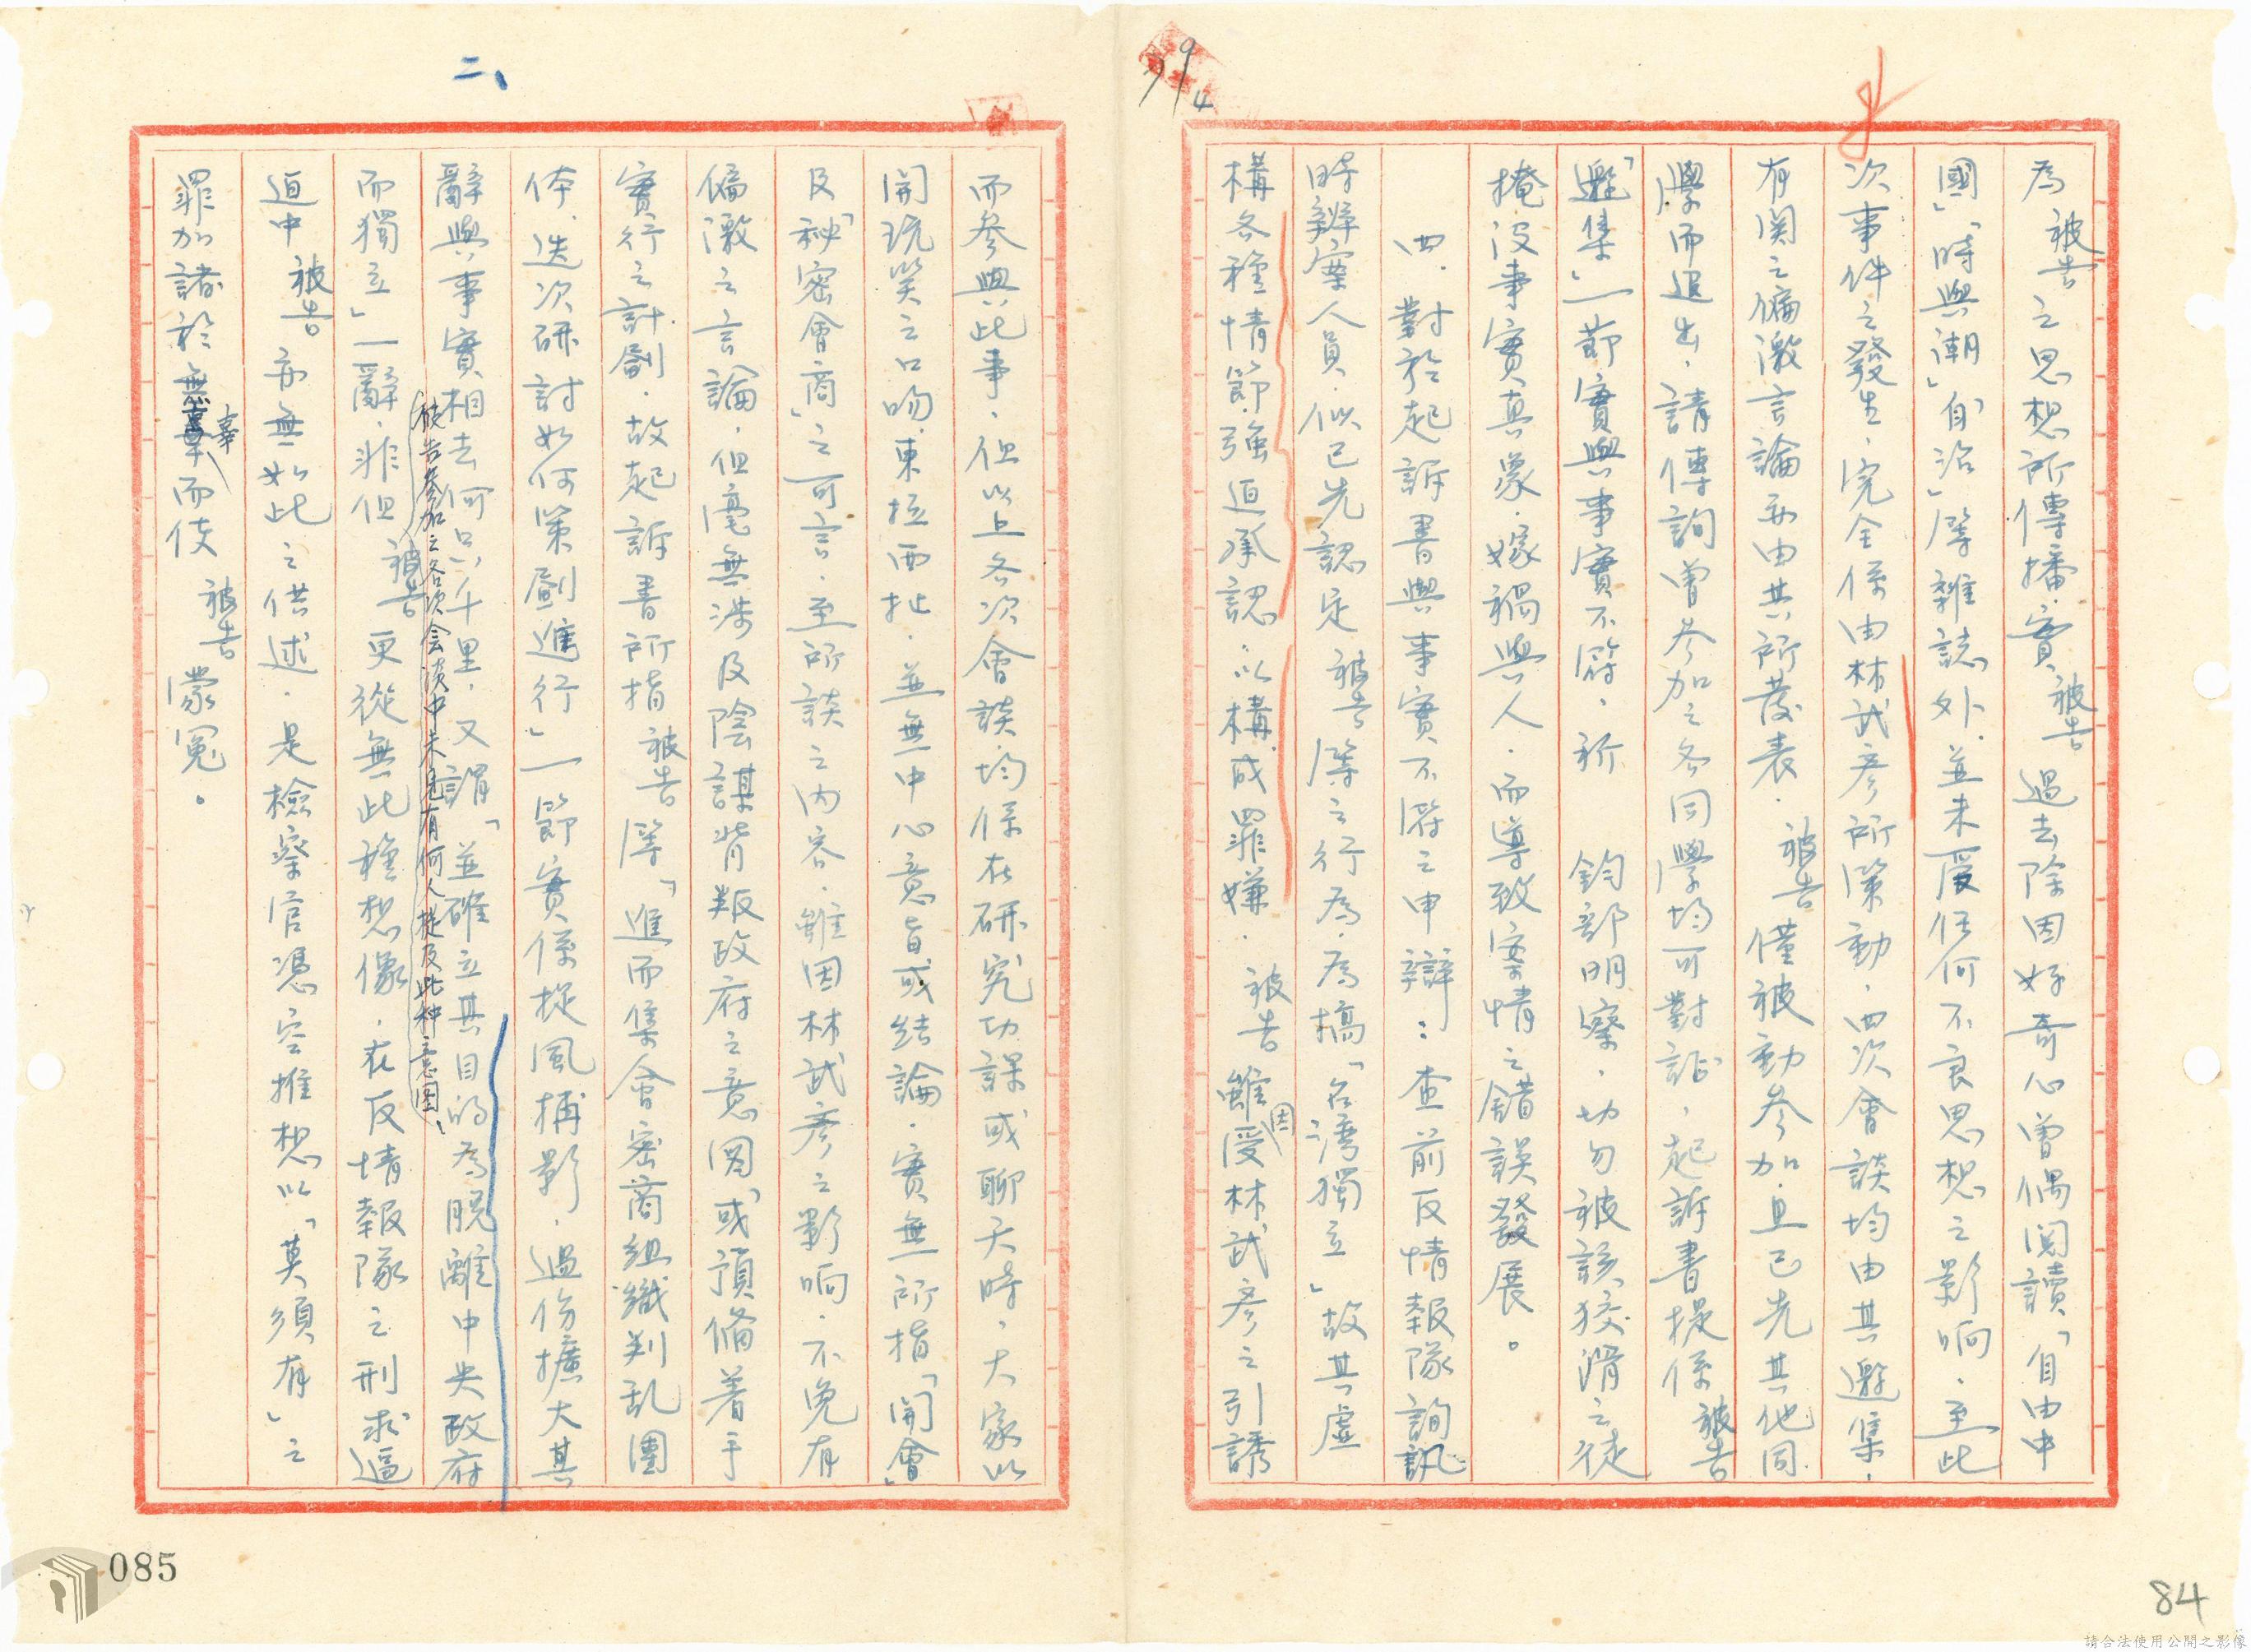 為被告之思想所傳播.實被告過去除因好奇心曾偶閱讀「自由中
國」「時與潮」「自治」等雜誌外.並未受任何不良思想之影响.至此
次事件之發生.完全係由林武彥所策動.四次會談均由其邀集.
有関之偏激言論亦由其所發表.被告僅被動參加.且已先其他同
學而退出.請傳詢曾參加之各同學均可對証.起訴書提係被告
「邀集」一節實與事實不符.祈 鈞部明察.切勿被該狡滑之徒
掩沒事實真象.嫁禍與人.而導致案情之錯誤發展。
四.對於起訴書與事實不符之申辯:查前反情報隊詢訊
時辦案人員.似已先認定被告等之行為.為搞「台灣獨立」故其虛
構各種情節.強迫承認.以構成罪嫌.被告雖因受林武彥之引誘
而參與此事.但以上各次會談.均係在研究功課或聊天時.大家以
開玩笑之口吻.東拉西扯.並無中心意旨或結論.實無所指「開會」
及「秘密會商」之可言.至所談之內容.雖因林武彥之影响.不免有
偏激之言論.但毫無涉及陰謀背叛政府之意図或預備着手
實行之計劃.故起訴書所指被告等「進而集會密商組織判乱團
体.迭次研討如何策劃進行」一節實係捉風捕影.過份擴大其
辭與事實相去何只千里.又謂「並確立其目的為脫離中央政府
被告參加之各次会談中未見有何人提及此种意图.
而獨立」一辭.非但被告更從無此種想像.在反情報隊之刑求逼
迫中被告亦無如此之供述.是檢察官憑空推想以「莫須有」之
罪加諸於無辜而使被告蒙冤。
二、
394
085
84
請合法使用公開之影像